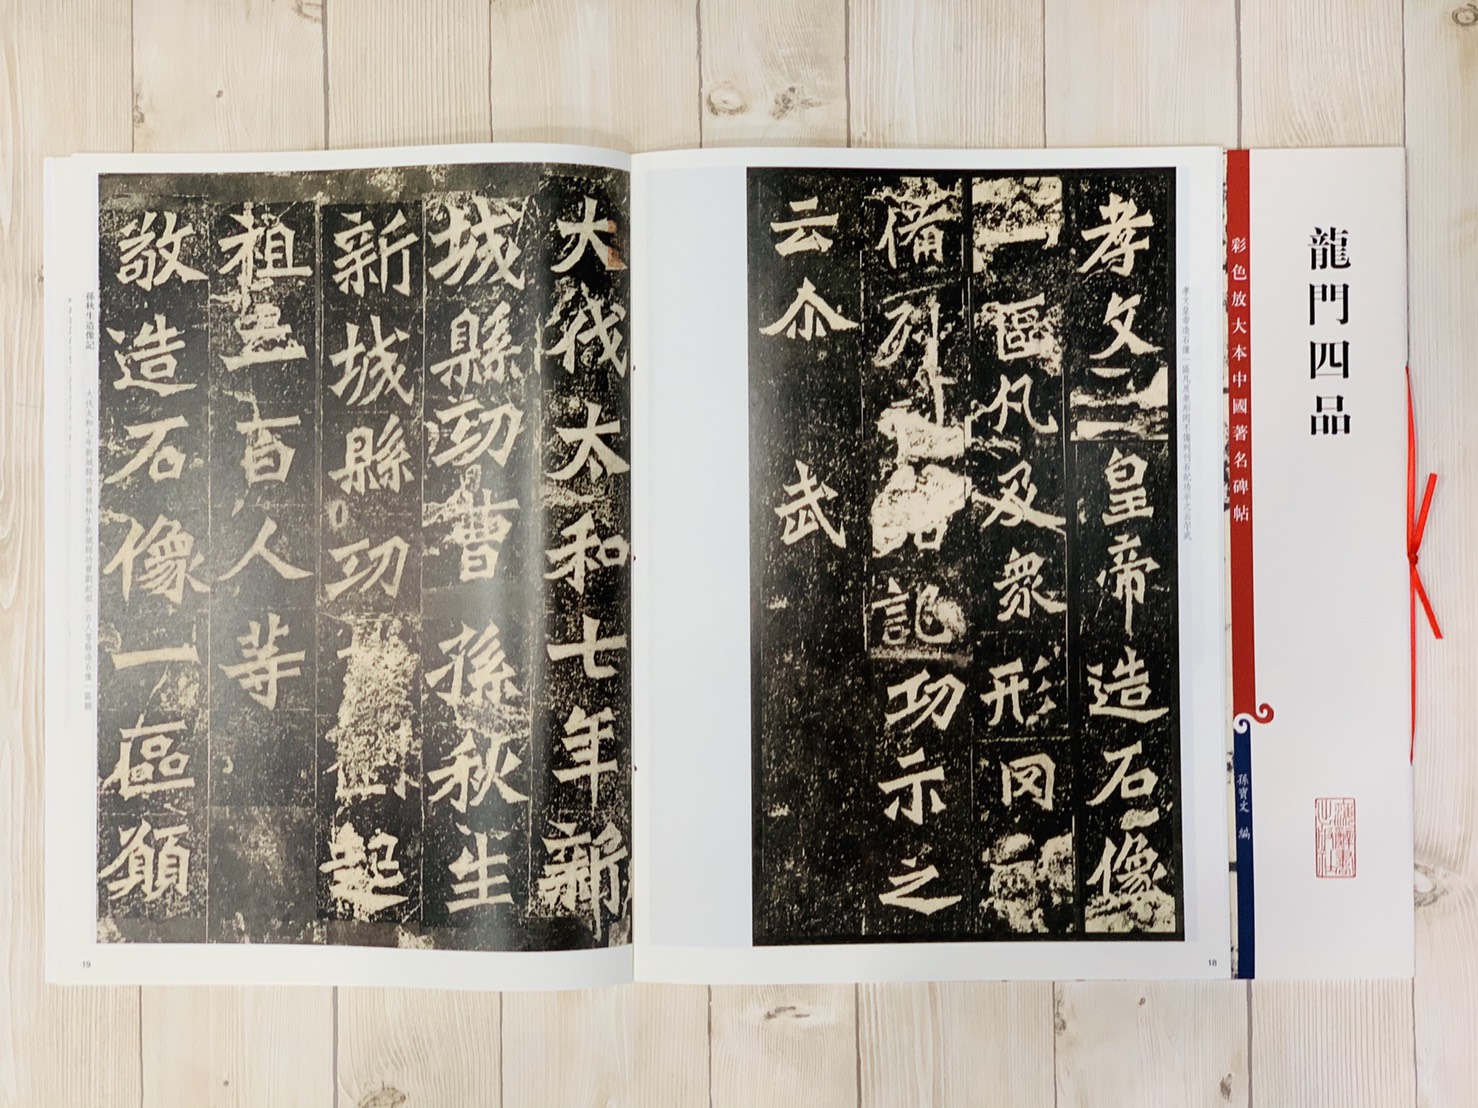 龍門四品
彩色放大本中國著名碑帖
孫寶文 編
孝文皇帝造石像
一區凡及衆形罔
備列刊石記功示之
云尒 武
孝文皇帝造石像一區凡及衆形罔不備列刊石記功示之云尒武
18
大伐太和七年新
城縣功曹孫秋生
新城縣功曹劉起
祖二百人等
敬造石像一區願
孫秋生造像記
大伐太和七年新城縣功曹孫秋生新城縣功曹劉起祖二百人等敬造石像一區願
19